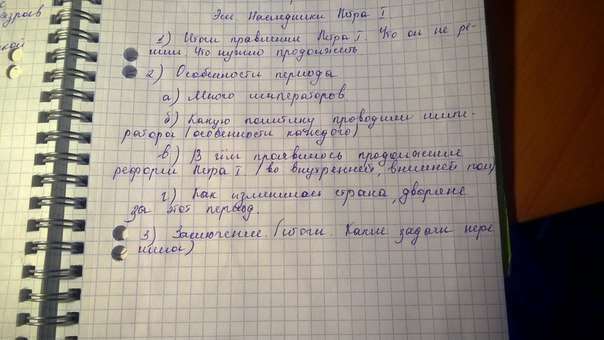 здраб
кой
Эссе Наследники Петра I
1) Итоги правления Петра I. Что он не ре-
шил. Что нужно продолжить
2) Особенности периода
а) Много императоров
б) Какую политику проводили импе-
ратора (особенности каждого)
в) В чём проявилось продолжение
реформ Петра I (во внутренней, внешней пол.
г) Как изменилась страна, дворяне
за этот период.
3) Заключение (итоги. Какие задачи нере
шил)